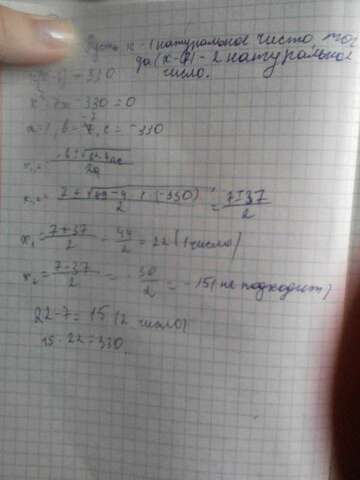 Пусть x - 1 натуральное число, тог
да (x-7) - 2 натуральное
число.
x(x-7) = 330
x² - 7x - 330 = 0
a = 1, b = -7, c = -330
x₁,₂ = (-b ± √(b² - 4ac)) / 2a
x₁,₂ = (7 ± √(49 - 4 · 1 · (-330))) / 2 = (7 ± 37) / 2
x₁ = (7 + 37) / 2 = 44 / 2 = 22 (1 число)
x₂ = (7 - 37) / 2 = -30 / 2 = -15 (не подходит)
22 - 7 = 15 (2 число)
15 · 22 = 330